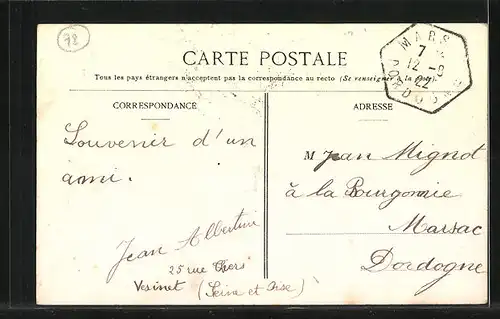 78
CARTE POSTALE
Tous les pays étrangers n'acceptent pas la correspondance au recto (Se renseigner à la Poste)
CORRESPONDANCE
ADRESSE
MARS
7
12 - 8
22
DORDOGNE
Souvenir d'un
ami.
Jean Albertini
25 rue Thers
Vesinet (Seine et Oise)
M Jean Mignot
à la Bourgonnie
Marsac
Dordogne